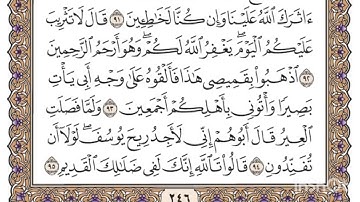 ءَاثَرَكَ ٱللَّهُ عَلَيْنَا وَإِن كُنَّا لَخَـٰطِـِٔينَ ٩١ قَالَ لَا تَثْرِيبَ
عَلَيْكُمُ ٱلْيَوْمَ ۖ يَغْفِرُ ٱللَّهُ لَكُمْ ۖ وَهُوَ أَرْحَمُ ٱلرَّٰحِمِينَ
٩٢ ٱذْهَبُوا۟ بِقَمِيصِى هَـٰذَا فَأَلْقُوهُ عَلَىٰ وَجْهِ أَبِى يَأْتِ
بَصِيرًا وَأْتُونِى بِأَهْلِكُمْ أَجْمَعِينَ ٩٣ وَلَمَّا فَصَلَتِ
ٱلْعِيرُ قَالَ أَبُوهُمْ إِنِّى لَأَجِدُ رِيحَ يُوسُفَ ۖ لَوْلَآ أَن
تُفَنِّدُونِ ٩٤ قَالُوا۟ تَٱللَّهِ إِنَّكَ لَفِى ضَلَـٰلِكَ ٱلْقَدِيمِ ٩٥
٢٤٦